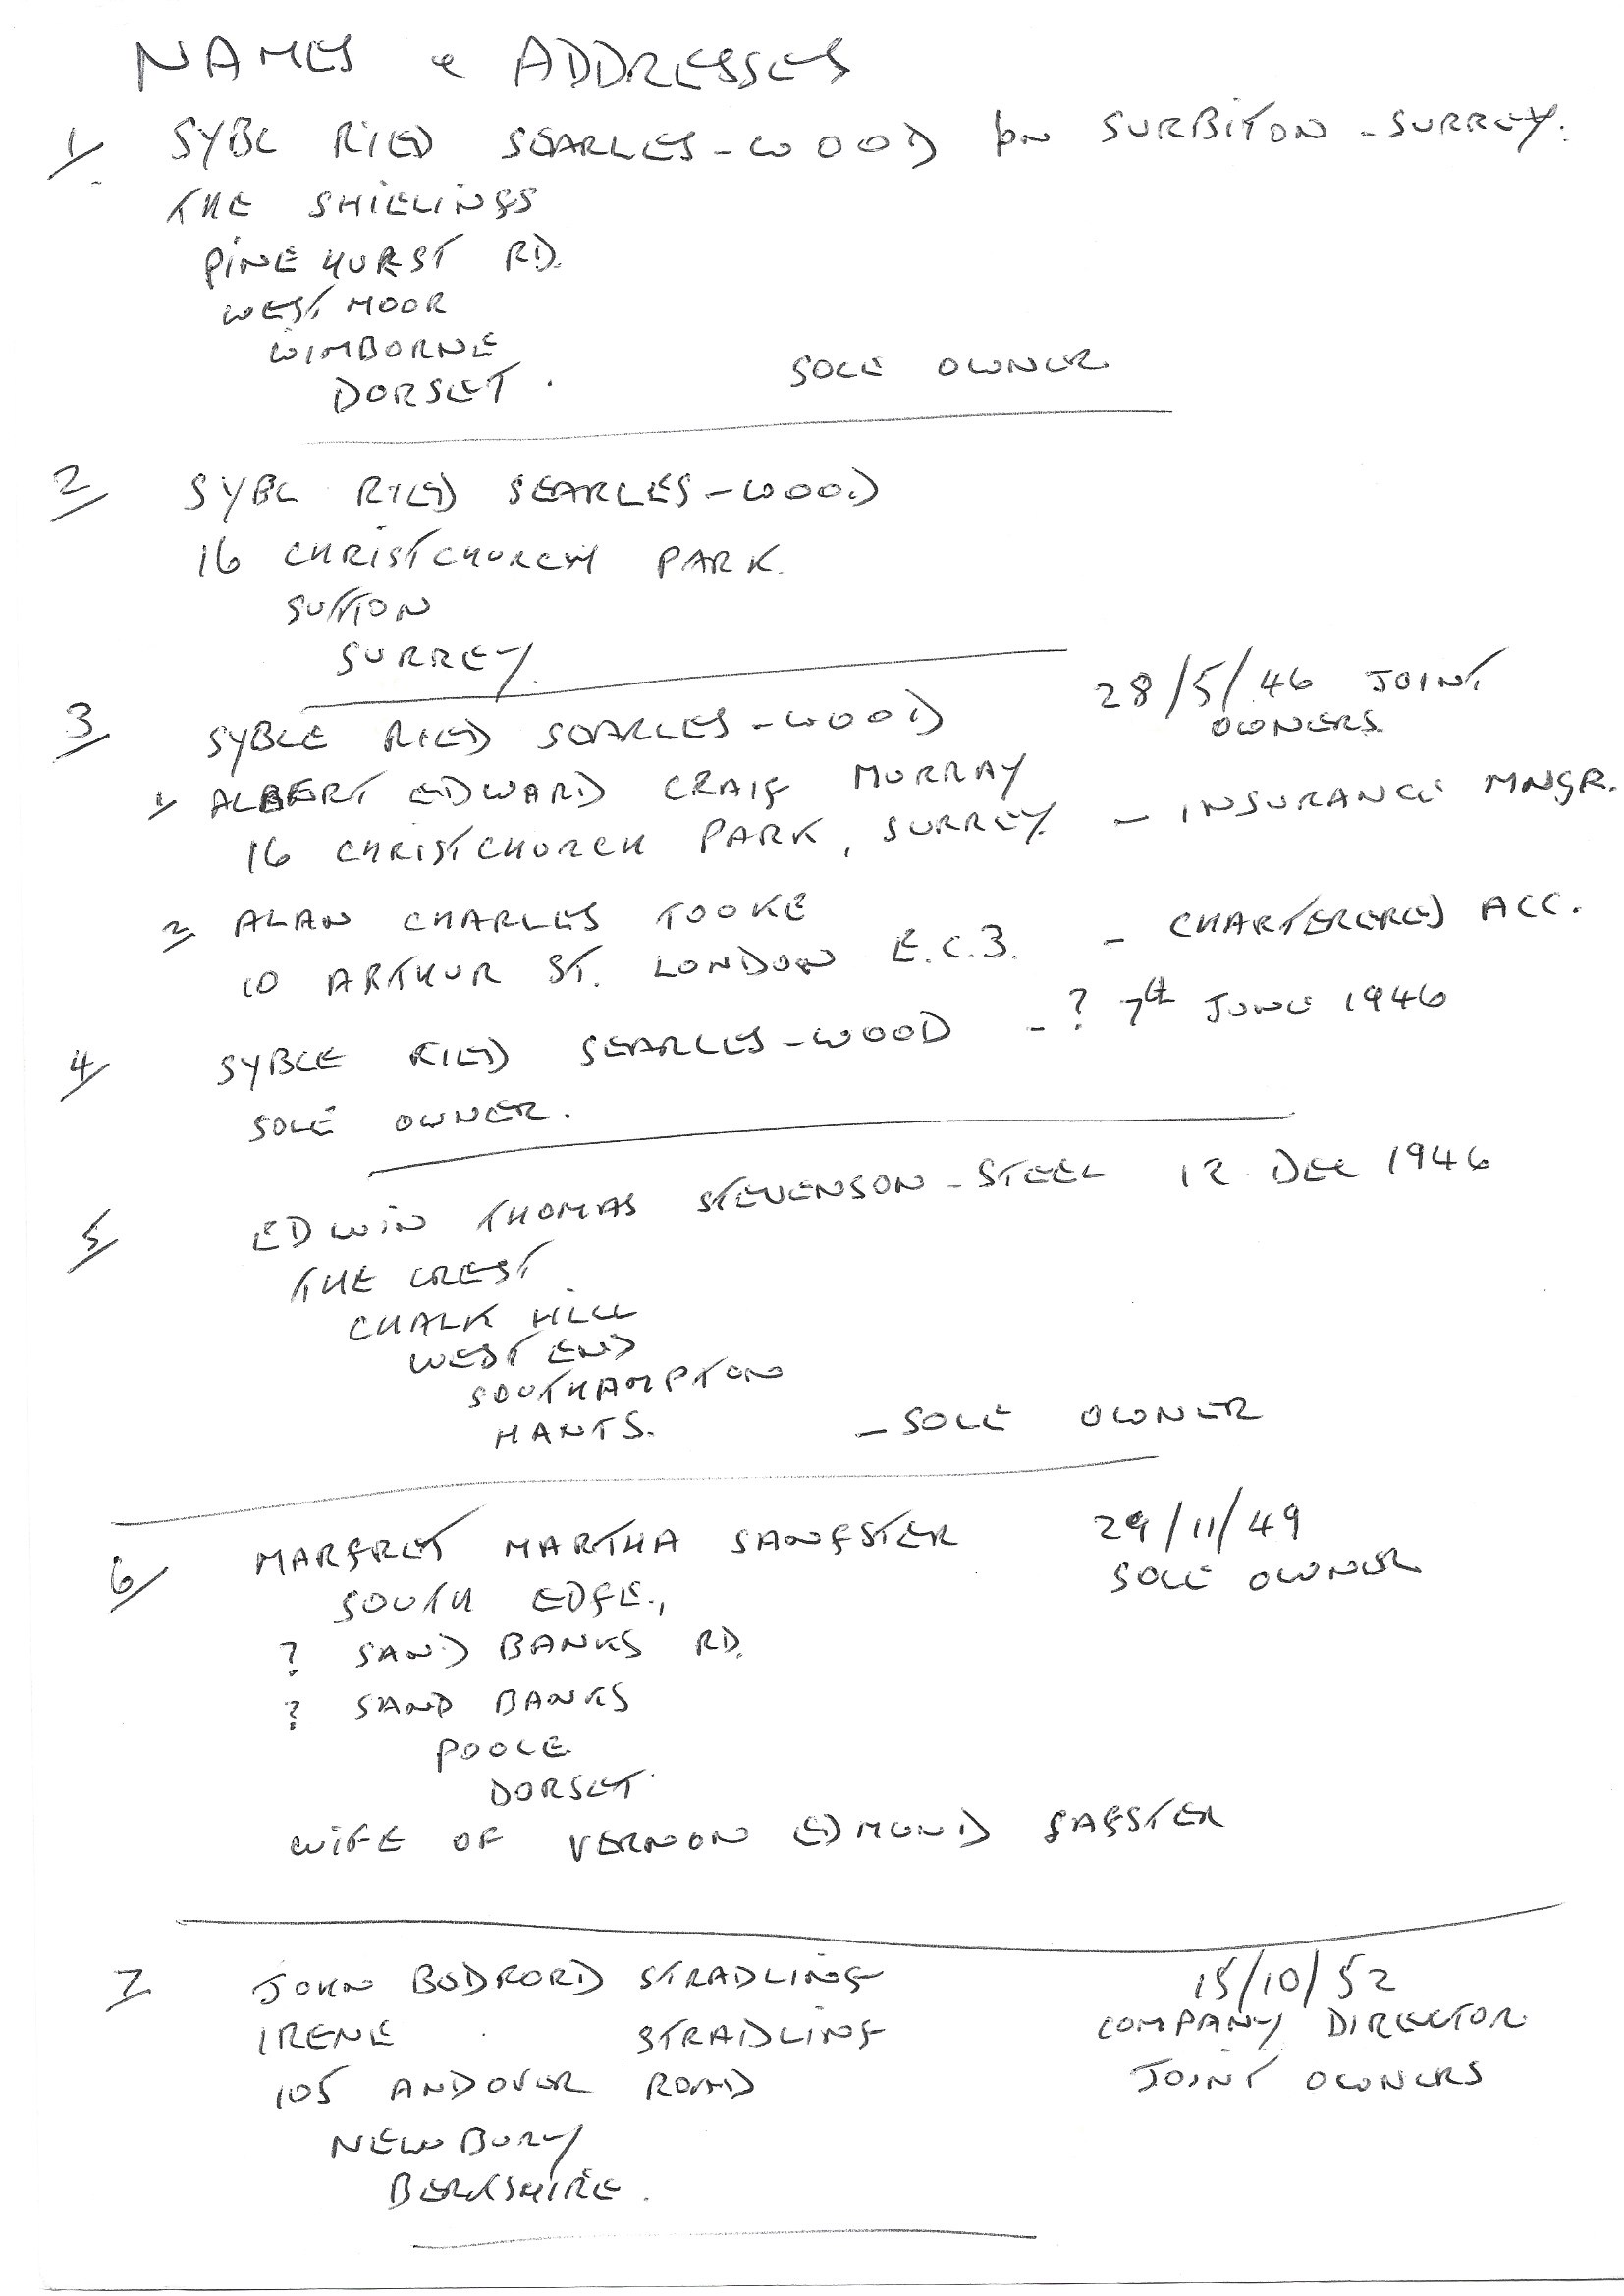 NAMES & ADDRESSES
1/ SYBL RIED SEARLES-WOOD bn SURBITON - SURREY.
THE SHIELINGS
PINE HURST RD.
WEST MOOR
WIMBORNE
DORSET. SOLE OWNER
2/ SYBL RIED SEARLES-WOOD
16 CHRISTCHURCH PARK.
SUTTON
SURREY.
3/ SYBLE RIED SEARLES-WOOD 28/5/46 JOINT
OWNERS.
1/ ALBERT EDWARD CRAIG MURRAY
16 CHRISTCHURCH PARK, SURREY. - INSURANCE MNGR.
2/ ALAN CHARLES TOOKE
10 ARTHUR ST. LONDON E.C.3. - CHARTERERED ACC.
4/ SYBLE RIED SEARLES-WOOD - ? 7th JUNE 1946
SOLE OWNER.
5/ EDWIN THOMAS STEVENSON-STEEL 12 DEC 1946
THE CREST
CHALK HILL
WEST END
SOUTHAMPTON
HANTS. - SOLE OWNER
6/ MARGRET MARTHA SANGSTER 29/11/49
SOUTH EDGE., SOLE OWNER
? SAND BANKS RD.
? SAND BANKS
POOLE
DORSET.
WIFE OF VERNON EDMUND SAGSTER
7 JOHN BODRORD STRADLING 15/10/52
IRENE STRADLING COMPANY DIRECTOR
105 ANDOVER ROAD JOINT OWNERS
NEWBURY
BERKSHIRE.